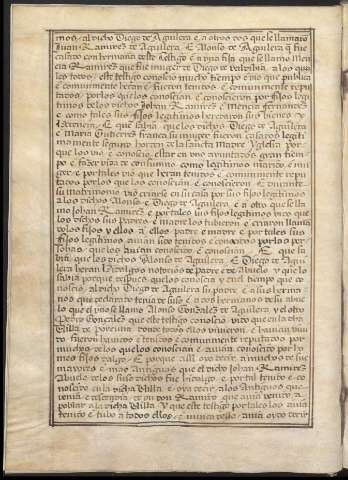 mos, al dicho Diego de Aguilera e a otros dos que se llamaron
Juan Ramires de Aguilera, E Alonso de Aguilera q fue
casado con hermana deste testigo e a una fija que se llamo Men
cia Ramires que fue muger de Diego de Valdibia a los qua
les todos, este testigo conoscio mucho tiempo e vio que publica
e comunmente heran e fueron tenidos e comunmente repu
tados por los que los conoscian e conoscieron por fijos legi
timos de los dichos Johan Ramires e Mencia Fernandes
e como tales sus fijos legitimos heredaron sus bienes y
herencia. E que sabia que los dichos Diego de Aguilera
e Maria Gutierres franca su muger fueron casados legiti
mamente segund horden de la Sancta Madre Yglesia por
que los vio e conoscio estar en uno ayuntados gran tiem
po e fazer vida de consumo como legitimos marido e mu
ger e por tales vio que heran tenidos e comunmente repu
tados por los que los conoscian e conoscieron e durante
su matrimonio vio criarse en su casa por sus fijos legitimos
a los dichos Alonso e Diego de Aguilera e a otro que se lla
mo Johan Ramires e por tales sus fijos legitimos vido que
los dichos sus padres e madre los tubieron e criaron llaman
dolos fijos y ellos a ellos padre e madre e por tales sus
fijos legitimos avian sido tenidos e conoscidos por las per
sonas que los avian conoscido e conoscian. E que sa
bia que los dichos Alonso de Aguilera E Diego de Agui
lera heran hidalgos notorios de Padre e de Abuelo y que lo
sabia porque despues que los conoscia y del tiempo que co
noscio al dicho Diego de Aguilera su padre e a sus herma
nos que declarado tenia de suso e a dos hermanos de su abue
lo que el uno se llamo Alonso Gonzales de Aguilera y el otro
Pedro Gonzales que este testigo conoscio vido que en la dha
Villa de Porcuna donde todos ellos vivieron e havian vivi
do fueron havidos e tenidos e comunmente reputados por
muchos de los que los conoscian e avian conoscido por ho
mes fijos dalgo. E porque assi oyo decir a muchos de sus
mayores e mas Antiguos que el dicho Johan Ramires
Abuelo de los suso dichos fue hidalgo e por tal tenido e co
noscido en la dicha Villa. E oyo decir a los Antiguos que
venia e descendia de un don Ramiro que avia venido a
poblar a la dicha Villa. Y que este testigo por tales los avia
tenido e tubo a todos ellos, e nunca dello avia oydo decir